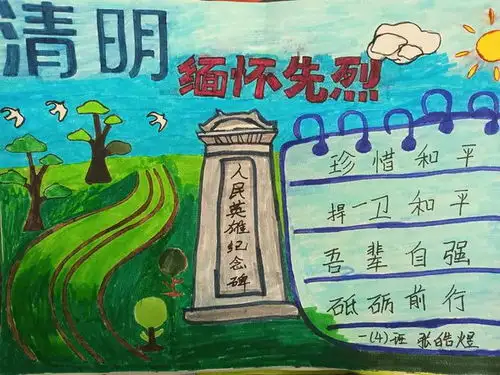 清明
缅怀先烈
人民英雄纪念碑
珍惜和平
捍卫和平
吾辈自强
砥砺前行
一(4)班 张皓煜